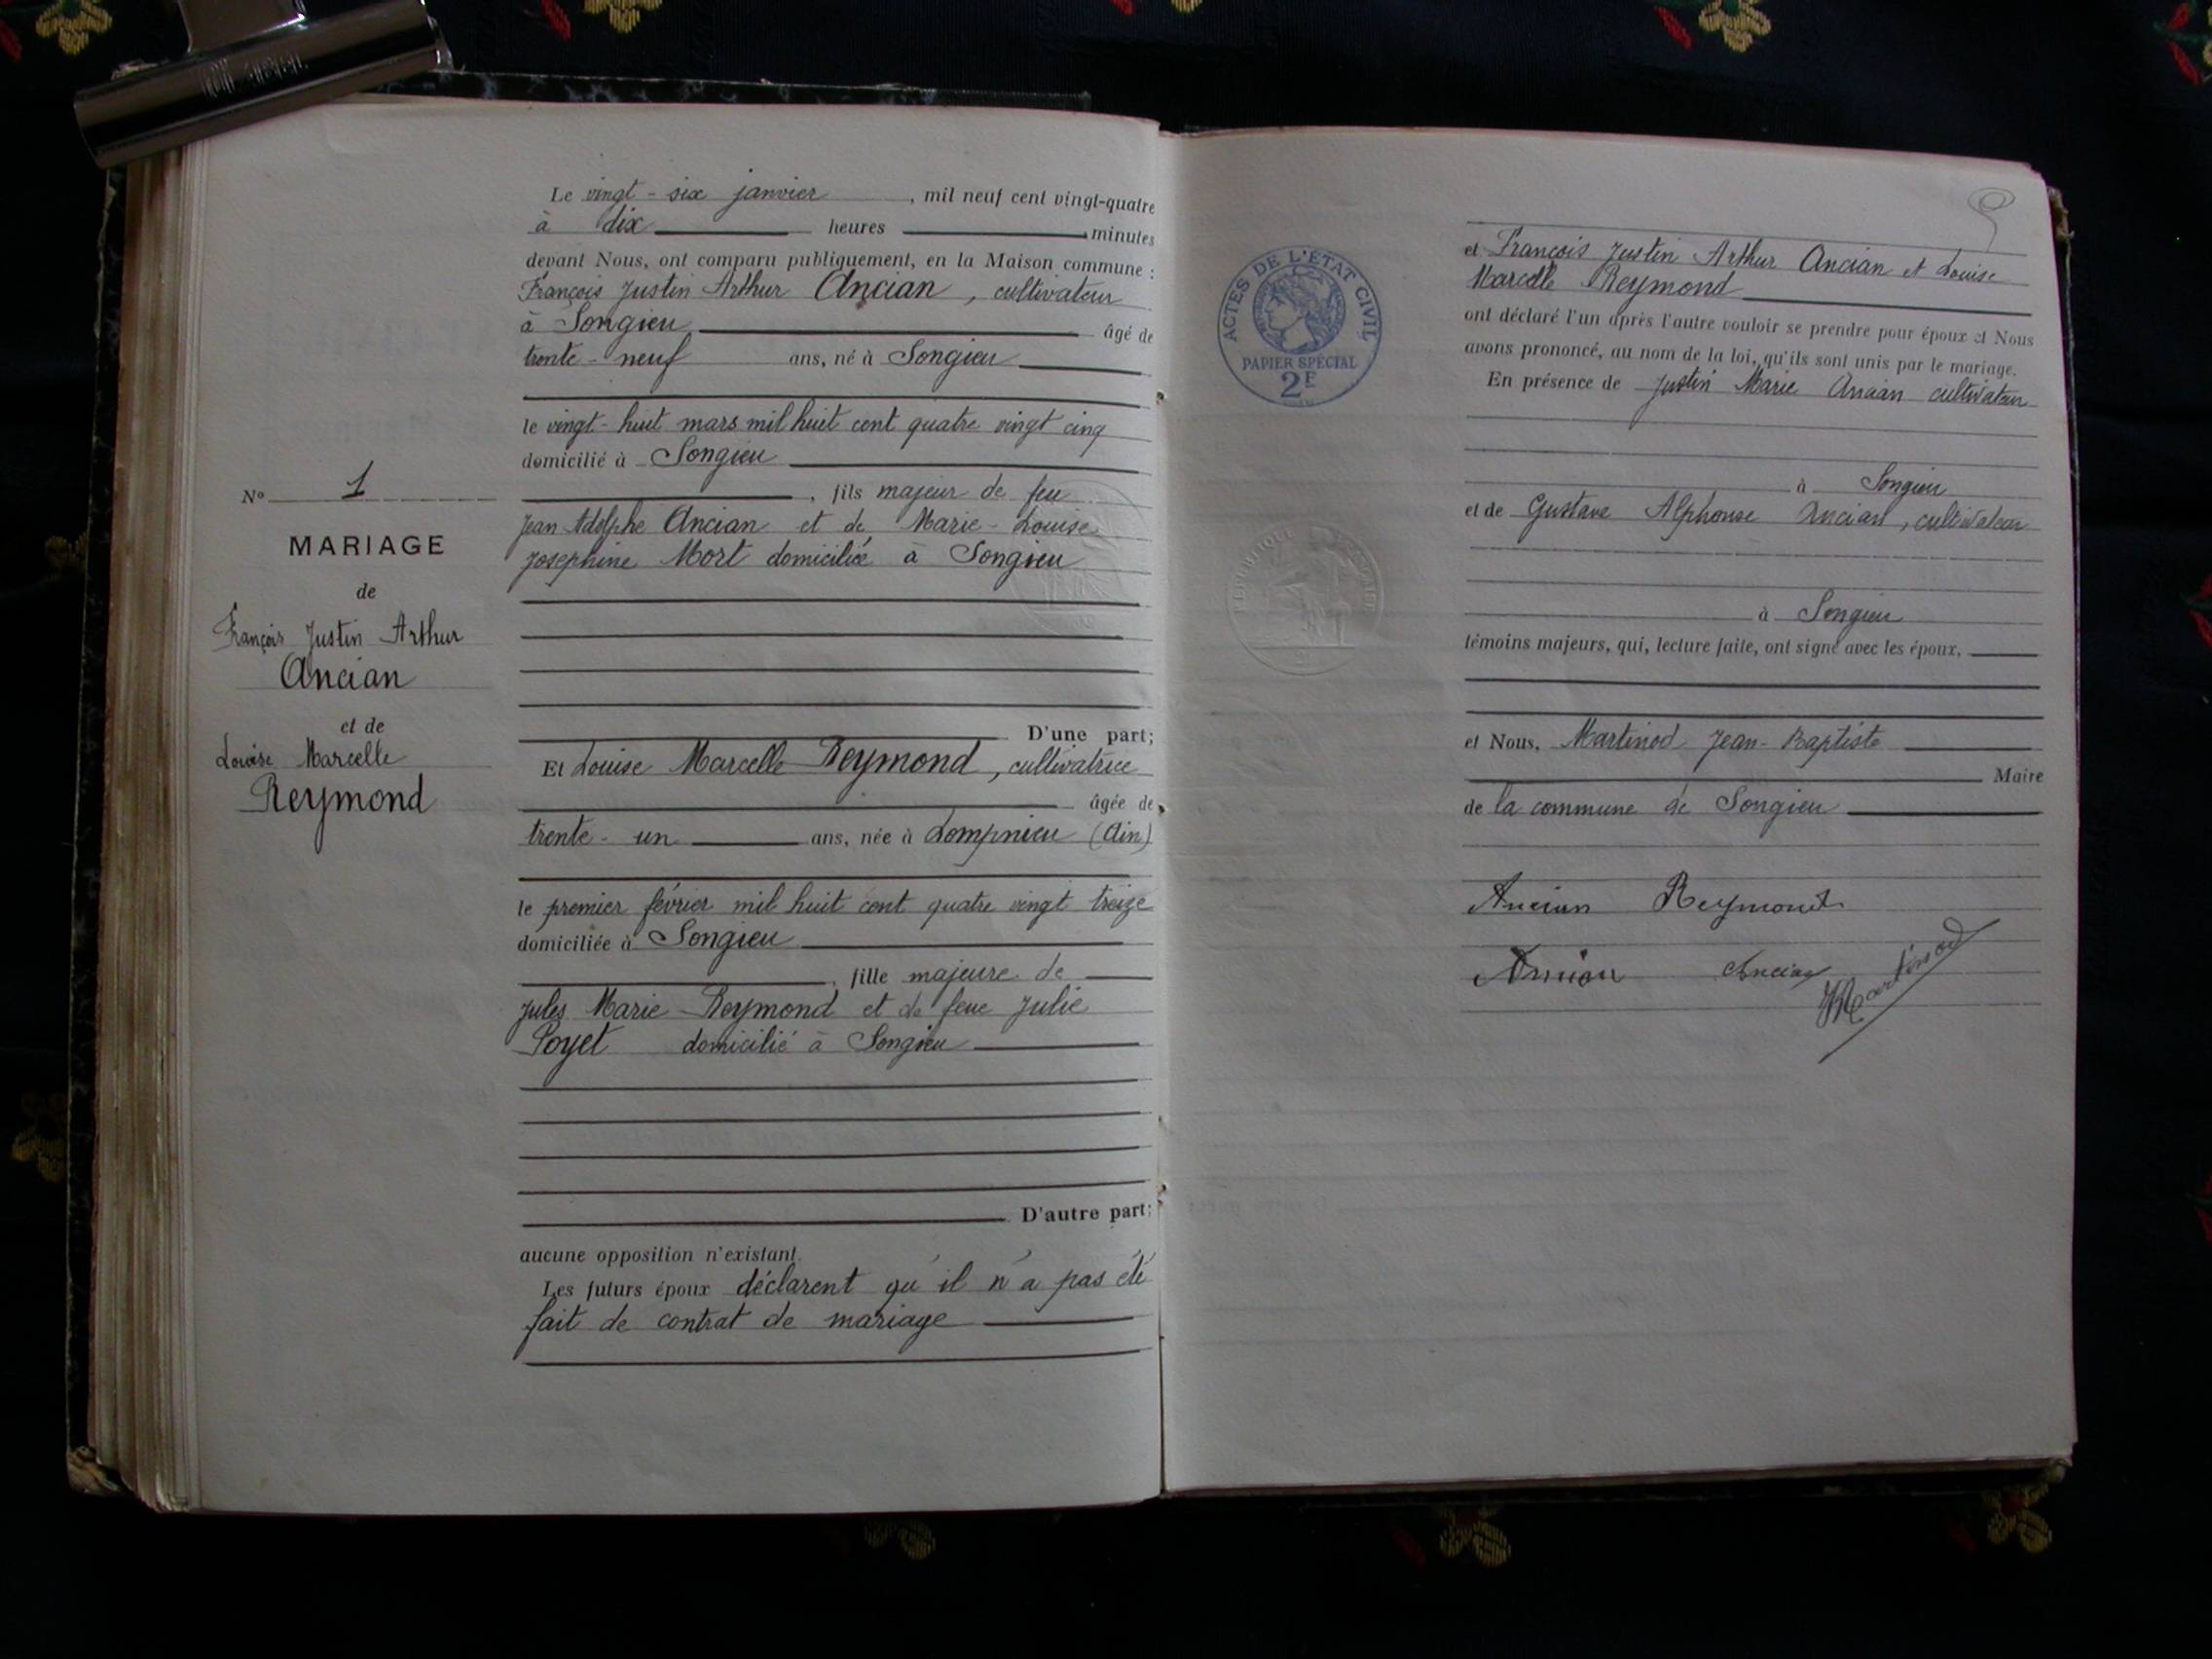 N° 1
MARIAGE
de
François Justin Arthur
Ancian
et de
Louise Marcelle
Reymond
Le vingt-six janvier, mil neuf cent vingt-quatre
à dix heures minutes
devant Nous, ont comparu publiquement, en la Maison commune :
François Justin Arthur Ancian, cultivateur
à Songieu âgé de
trente-neuf ans, né à Songieu
le vingt-huit mars mil huit cent quatre vingt cinq
domicilié à Songieu
, fils majeur de feu
Jean Adolphe Ancian et de Marie-Louise
Josephine Mort domiciliée à Songieu
D'une part;
Et Louise Marcelle Reymond, cultivatrice
âgée de
trente-un ans, née à Lompnieu (Ain)
le premier février mil huit cent quatre vingt treize
domiciliée à Songieu
, fille majeure de
Jules Marie Reymond et de feue Julie
Poyet domicilié à Songieu
D'autre part;
aucune opposition n'existant.
Les futurs époux déclarent qu'il n'a pas été
fait de contrat de mariage
ACTES DE L'ÉTAT CIVIL
PAPIER SPÉCIAL
2F
RÉPUBLIQUE FRANÇAISE
et François Justin Arthur Ancian et Louise
Marcelle Reymond
ont déclaré l'un après l'autre vouloir se prendre pour époux et Nous
avons prononcé, au nom de la loi, qu'ils sont unis par le mariage.
En présence de Justin Marie Ancian cultivateur
à Songieu
et de Gustave Alphonse Ancian, cultivateur
à Songieu
témoins majeurs, qui, lecture faite, ont signé avec les époux,
et Nous, Martinod Jean-Baptiste
Maire
de la commune de Songieu
Ancian Reymond
Ancian Ancian Martinod